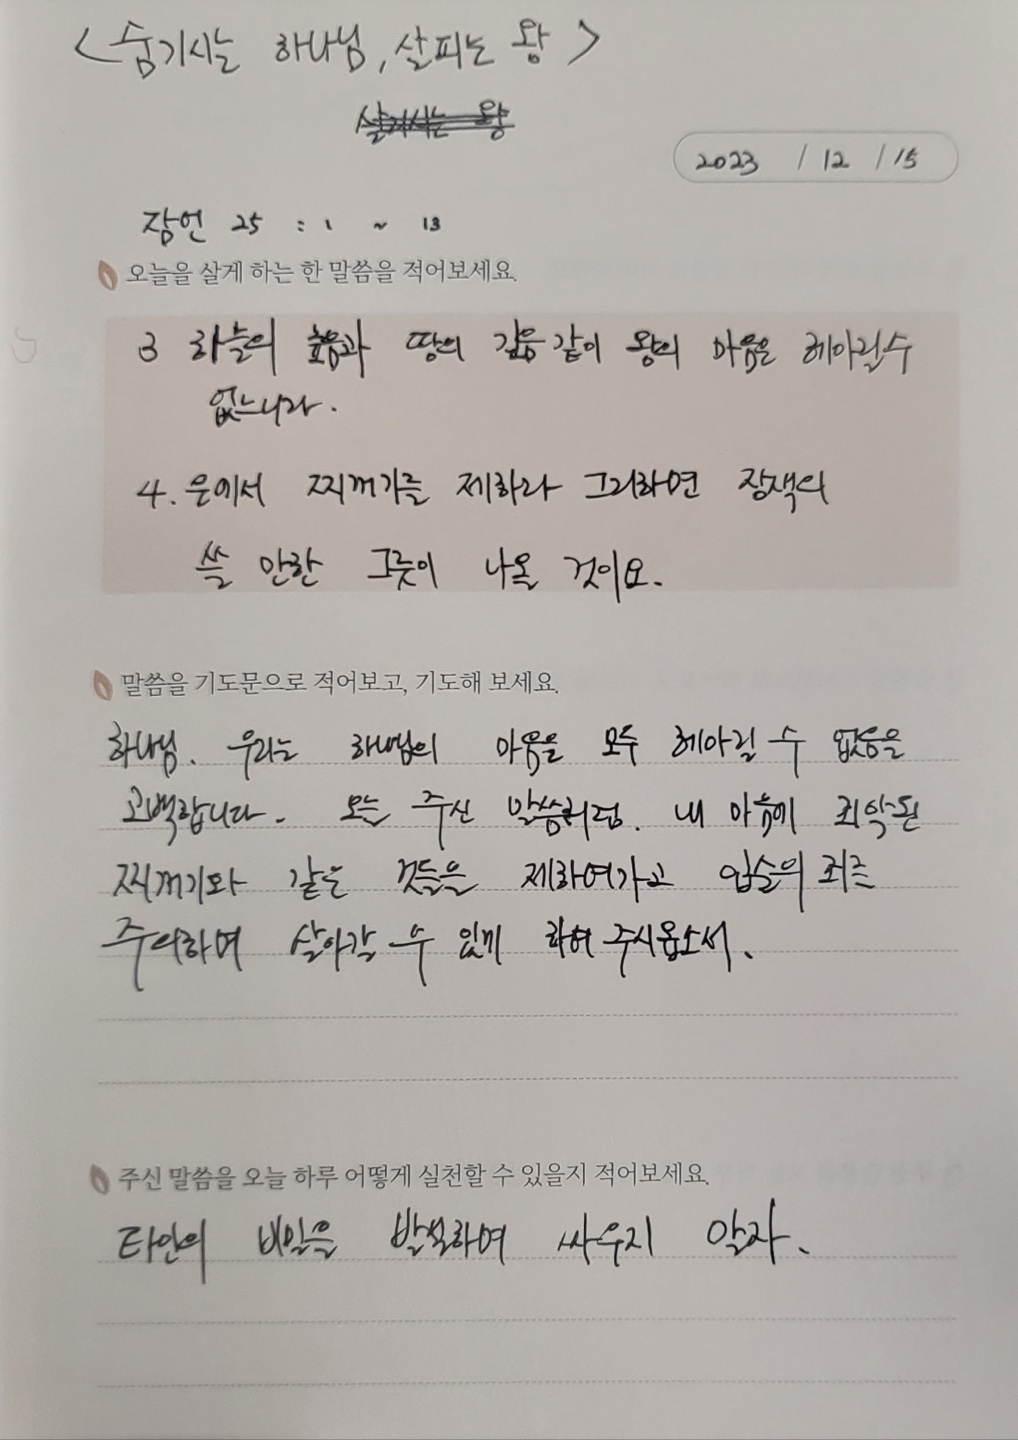 <숨기시는 하나님, 살피는 왕>
살기시는 왕
2023 / 12 / 15
잠언 25 : 1 ~ 13
오늘을 살게 하는 한 말씀을 적어보세요.
3 하늘의 높음과 땅의 깊음 같이 왕의 마음은 헤아릴 수
없느니라.
4. 은에서 찌꺼기를 제하라 그리하면 장색의
쓸 만한 그릇이 나올 것이요.
말씀을 기도문으로 적어보고, 기도해 보세요.
하나님. 우리는 하나님의 마음을 모두 헤아릴 수 없음을
고백합니다. 오늘 주신 말씀처럼. 내 마음에 죄악된
찌꺼기와 같은 것들을 제하여가고 입술의 죄를
주의하여 살아갈 수 있게 하여 주시옵소서.
주신 말씀을 오늘 하루 어떻게 실천할 수 있을지 적어보세요.
타인의 비밀을 발설하여 싸우지 말자.